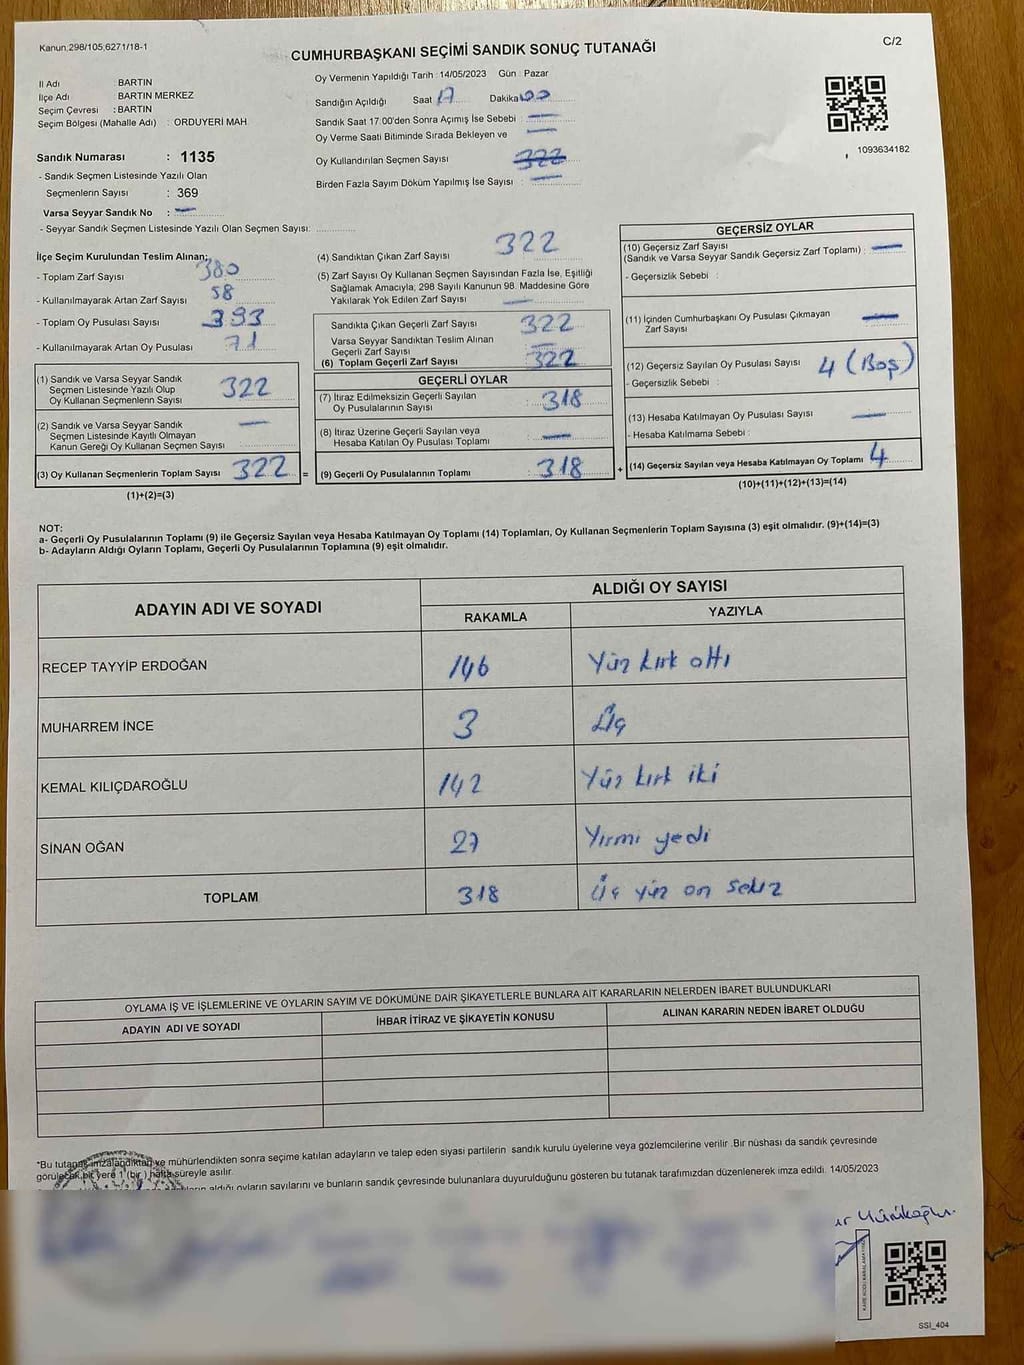 Kanun,298/105,6271/18-1
CUMHURBAŞKANI SEÇİMİ SANDIK SONUÇ TUTANAĞI
C/2
İl Adı : BARTIN
İlçe Adı BARTIN MERKEZ
Seçim Çevresi : BARTIN
Seçim Bölgesi (Mahalle Adı) : ORDUYERİ MAH.
Sandık Numarası : 1135
- Sandık Seçmen Listesinde Yazılı Olan
Seçmenlerin Sayısı : 369
Varsa Seyyar Sandık No : —
- Seyyar Sandık Seçmen Listesinde Yazılı Olan Seçmen Sayısı:
Oy Vermenin Yapıldığı Tarih : 14/05/2023 Gün : Pazar
Sandığın Açıldığı Saat 17 Dakika 00
Sandık Saat 17.00'den Sonra Açımış İse Sebebi : —
Oy Verme Saati Bitiminde Sırada Bekleyen ve —
Oy Kullandırılan Seçmen Sayısı 322
Birden Fazla Sayım Döküm Yapılmış İse Sayısı : —
1093634182
İlçe Seçim Kurulundan Teslim Alınan;
- Toplam Zarf Sayısı 380
- Kullanılmayarak Artan Zarf Sayısı 58
- Toplam Oy Pusulası Sayısı 393
- Kullanılmayarak Artan Oy Pusulası 71
(1) Sandık ve Varsa Seyyar Sandık
Seçmen Listesinde Yazılı Olup
Oy Kullanan Seçmenlerin Sayısı 322
(2) Sandık ve Varsa Seyyar Sandık
Seçmen Listesinde Kayıtlı Olmayan
Kanun Gereği Oy Kullanan Seçmen Sayısı —
(3) Oy Kullanan Seçmenlerin Toplam Sayısı 322 =
(1)+(2)=(3)
(4) Sandıktan Çıkan Zarf Sayısı 322
(5) Zarf Sayısı Oy Kullanan Seçmen Sayısından Fazla İse, Eşitliği
Sağlamak Amacıyla; 298 Sayılı Kanunun 98. Maddesine Göre
Yakılarak Yok Edilen Zarf Sayısı —
Sandıkta Çıkan Geçerli Zarf Sayısı 322
Varsa Seyyar Sandıktan Teslim Alınan
Geçerli Zarf Sayısı —
(6) Toplam Geçerli Zarf Sayısı 322
GEÇERLİ OYLAR
(7) İtiraz Edilmeksizin Geçerli Sayılan
Oy Pusulalarının Sayısı 318
(8) İtiraz Üzerine Geçerli Sayılan veya
Hesaba Katılan Oy Pusulası Toplamı —
(9) Geçerli Oy Pusulalarının Toplamı 318 +
GEÇERSİZ OYLAR
(10) Geçersiz Zarf Sayısı
(Sandık ve Varsa Seyyar Sandık Geçersiz Zarf Toplamı) : —
- Geçersizlik Sebebi :
(11) İçinden Cumhurbaşkanı Oy Pusulası Çıkmayan
Zarf Sayısı —
(12) Geçersiz Sayılan Oy Pusulası Sayısı 4 (Boş)
- Geçersizlik Sebebi :
(13) Hesaba Katılmayan Oy Pusulası Sayısı —
- Hesaba Katılmama Sebebi :
(14) Geçersiz Sayılan veya Hesaba Katılmayan Oy Toplamı 4
(10)+(11)+(12)+(13)=(14)
NOT:
a- Geçerli Oy Pusulalarının Toplamı (9) ile Geçersiz Sayılan veya Hesaba Katılmayan Oy Toplamı (14) Toplamları, Oy Kullanan Seçmenlerin Toplam Sayısına (3) eşit olmalıdır. (9)+(14)=(3)
b- Adayların Aldığı Oyların Toplamı, Geçerli Oy Pusulalarının Toplamına (9) eşit olmalıdır.
ADAYIN ADI VE SOYADI
ALDIĞI OY SAYISI
RAKAMLA YAZIYLA
RECEP TAYYİP ERDOĞAN 146 Yüz kırk altı
MUHARREM İNCE 3 Üç
KEMAL KILIÇDAROĞLU 142 Yüz kırk iki
SİNAN OĞAN 27 Yirmi yedi
TOPLAM 318 Üç yüz on sekiz
OYLAMA İŞ VE İŞLEMLERİNE VE OYLARIN SAYIM VE DÖKÜMÜNE DAİR ŞİKAYETLERLE BUNLARA AİT KARARLARIN NELERDEN İBARET BULUNDUKLARI
ADAYIN ADI VE SOYADI İHBAR İTİRAZ VE ŞİKAYETİN KONUSU ALINAN KARARIN NEDEN İBARET OLDUĞU
*Bu tutanak imzalandıktan ve mühürlendikten sonra seçime katılan adayların ve talep eden siyasi partilerin sandık kurulu üyelerine veya gözlemcilerine verilir .Bir nüshası da sandık çevresinde
görülecek bir yere 1 (bir ) hafta süreyle asılır.
aldığı oyların sayılarını ve bunların sandık çevresinde bulunanlara duyurulduğunu gösteren bu tutanak tarafımızdan düzenlenerek imza edildi. 14/05/2023
SSI_404